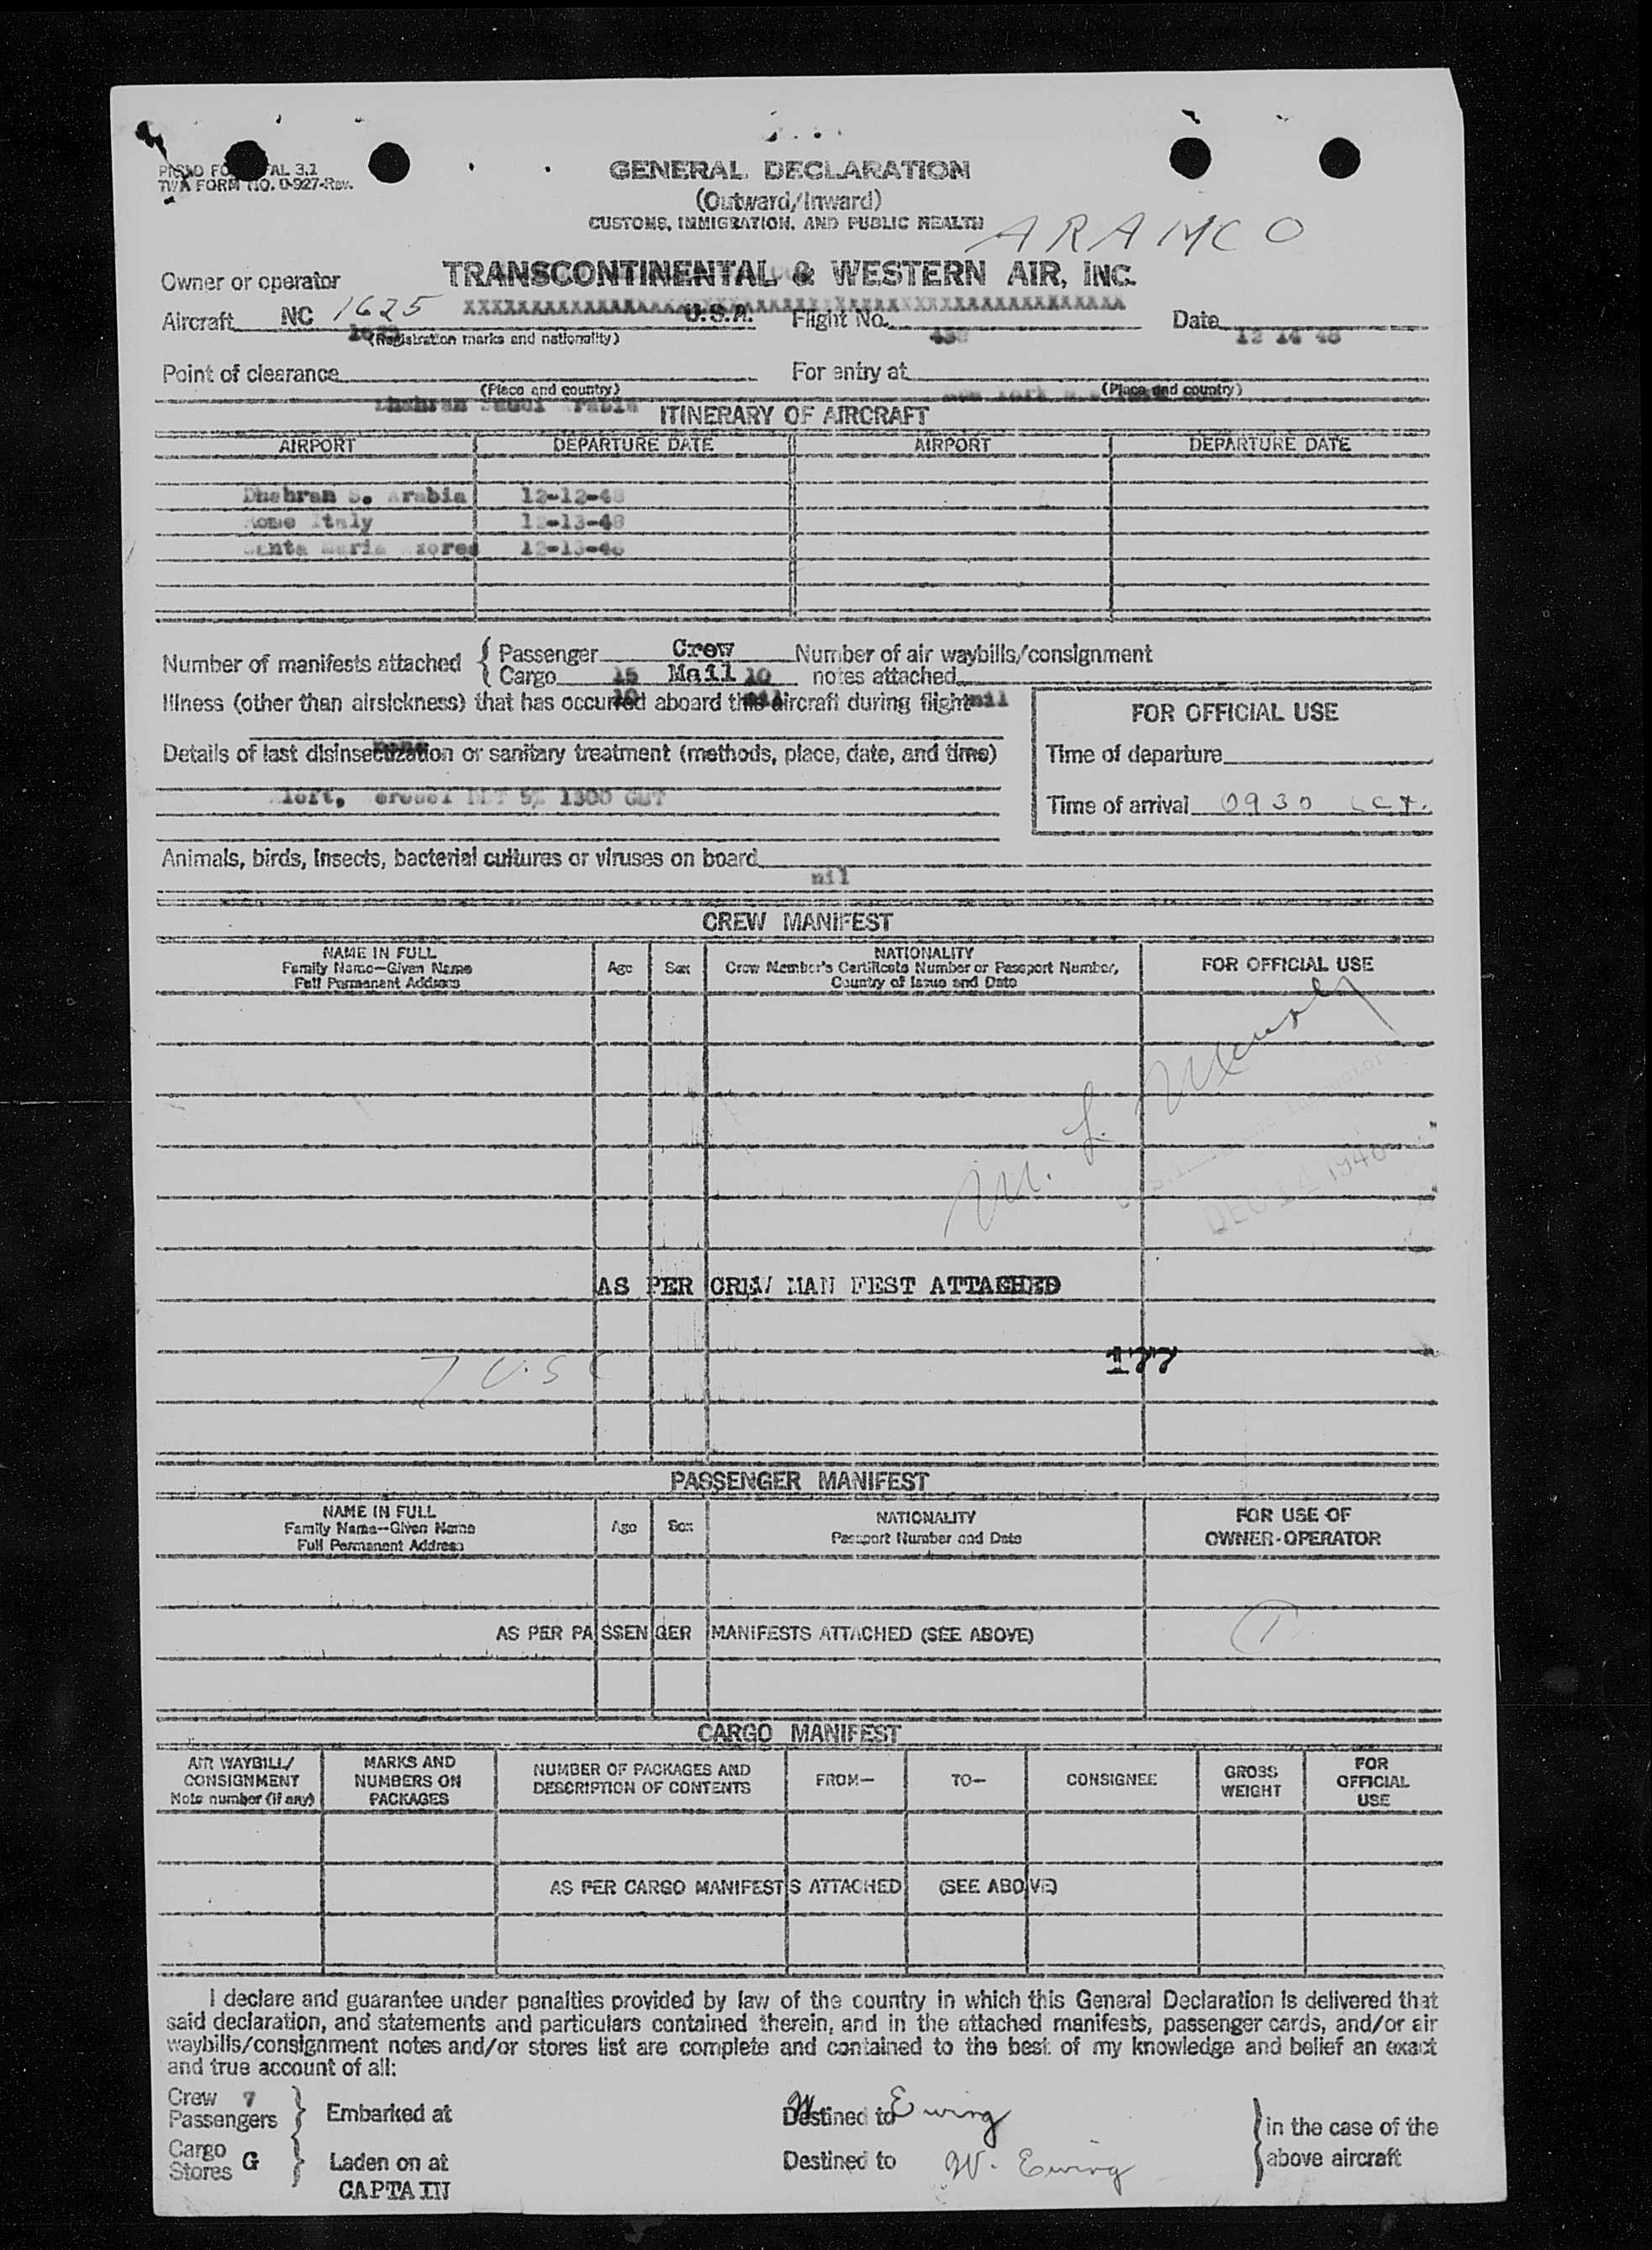 TWA FORM NO. 0-927-Rev.
GENERAL DECLARATION
(Outward/Inward)
CUSTOMS, IMMIGRATION, AND PUBLIC HEALTH
ARAMCO
Owner or operator TRANSCONTINENTAL & WESTERN AIR, INC.
Aircraft NC 1625 U.S.A. Flight No. Date 12 14 48
(Registration marks and nationality)
Point of clearance For entry at
(Place and country) (Place and country)
Dhahran Saudi Arabia
ITINERARY OF AIRCRAFT
AIRPORT DEPARTURE DATE AIRPORT DEPARTURE DATE
Dhahran S. Arabia 12-12-48
Rome Italy 12-13-48
Santa Maria Azores 12-13-48
Number of manifests attached { Passenger Crew Number of air waybills/consignment
Cargo 15 Mail 10 notes attached
Illness (other than airsickness) that has occurred aboard this aircraft during flight nil
FOR OFFICIAL USE
Details of last disinsectization or sanitary treatment (methods, place, date, and time)
Time of departure
Aloft, Aerosol DDT 5% 1300 GMT
Time of arrival 0930
Animals, birds, insects, bacterial cultures or viruses on board
nil
CREW MANIFEST
NAME IN FULL
Family Name—Given Name
Full Permanent Address
Age Sex
NATIONALITY
Crew Member's Certificate Number or Passport Number,
Country of Issue and Date
FOR OFFICIAL USE
Inspector
DEC 14 1948
AS PER CREW MAN FEST ATTACHED
177
7 U.S C
PASSENGER MANIFEST
NAME IN FULL
Family Name—Given Name
Full Permanent Address
Age Sex
NATIONALITY
Passport Number and Date
FOR USE OF
OWNER-OPERATOR
AS PER PASSENGER MANIFESTS ATTACHED (SEE ABOVE)
CARGO MANIFEST
AIR WAYBILL/
CONSIGNMENT
Note number (if any)
MARKS AND
NUMBERS ON
PACKAGES
NUMBER OF PACKAGES AND
DESCRIPTION OF CONTENTS
FROM—
TO—
CONSIGNEE
GROSS
WEIGHT
FOR
OFFICIAL
USE
AS PER CARGO MANIFESTS ATTACHED (SEE ABOVE)
I declare and guarantee under penalties provided by law of the country in which this General Declaration is delivered that
said declaration, and statements and particulars contained therein, and in the attached manifests, passenger cards, and/or air
waybills/consignment notes and/or stores list are complete and contained to the best of my knowledge and belief an exact
and true account of all:
Crew 7
Passengers } Embarked at Destined to } in the case of the
W. Ewing
Cargo
Stores G } Laden on at Destined to above aircraft
W. Ewing
CAPTAIN